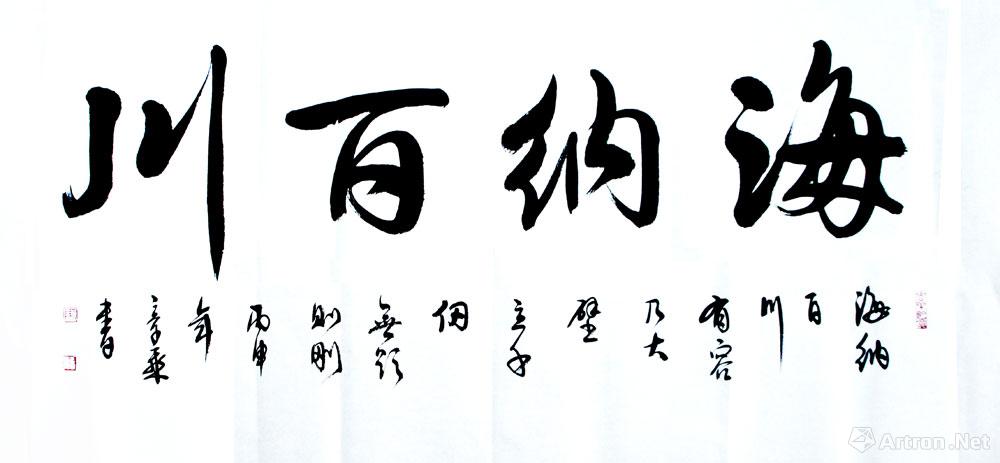 海纳百川
海纳
百
川
有容
乃大
壁
立千
仞
無欲
则刚
丙申
年
書
Artron.Net